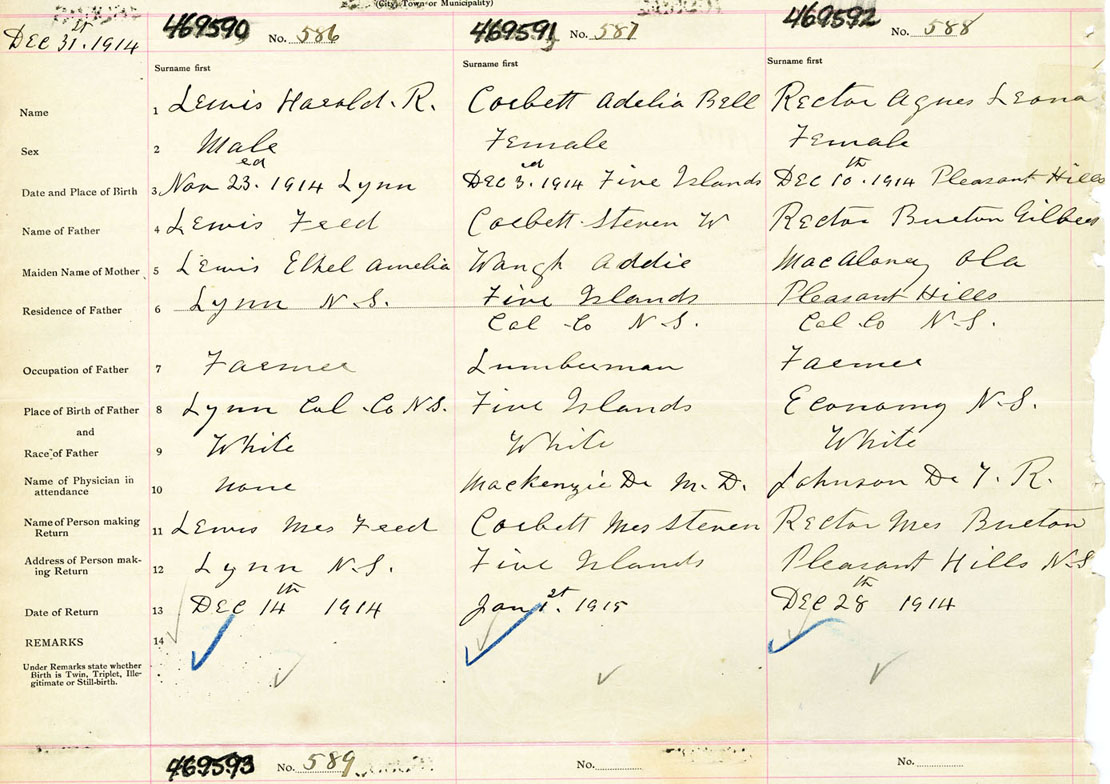 (City, Town or Municipality)
DEC 31st. 1914
469590 No. 586
469591 No. 587
469592 No. 588
Surname first Surname first Surname first
Name 1 Lewis Harold. R. Corbett Adelia Bell Rector Agnes Leona
Sex 2 Male Female Female
Date and Place of Birth 3 Nov 23.ed 1914 Lynn DEC 3.ed 1914 Five Islands DEC 10th. 1914 Pleasant Hills
Name of Father 4 Lewis Fred Corbett Steven W Rector Burton Gilbert
Maiden Name of Mother 5 Lewis Ethel Amelia Waugh Addie MacAloney Ola
Residence of Father 6 Lynn N.S. Five Islands Pleasant Hills
Col Co N.S. Col Co N.S.
Occupation of Father 7 Farmer Lumberman Farmer
Place of Birth of Father 8 Lynn Col. Co N.S. Five Islands Economy N.S.
and
Race of Father 9 White White White
Name of Physician in
attendance 10 None Mackenzie Dr M. D. Johnson Dr T. R.
Name of Person making
Return 11 Lewis Mrs Fred Corbett Mrs Steven Rector Mrs Burton
Address of Person mak-
ing Return 12 Lynn N.S. Five Islands Pleasant Hills N.S
Date of Return 13 DEC 14th 1914 Jan 1st. 1915 DEC 28th 1914
REMARKS 14
Under Remarks state whether
Birth is Twin, Triplet, Ille-
gitimate or Still-birth.
469593 No. 589 No. No.